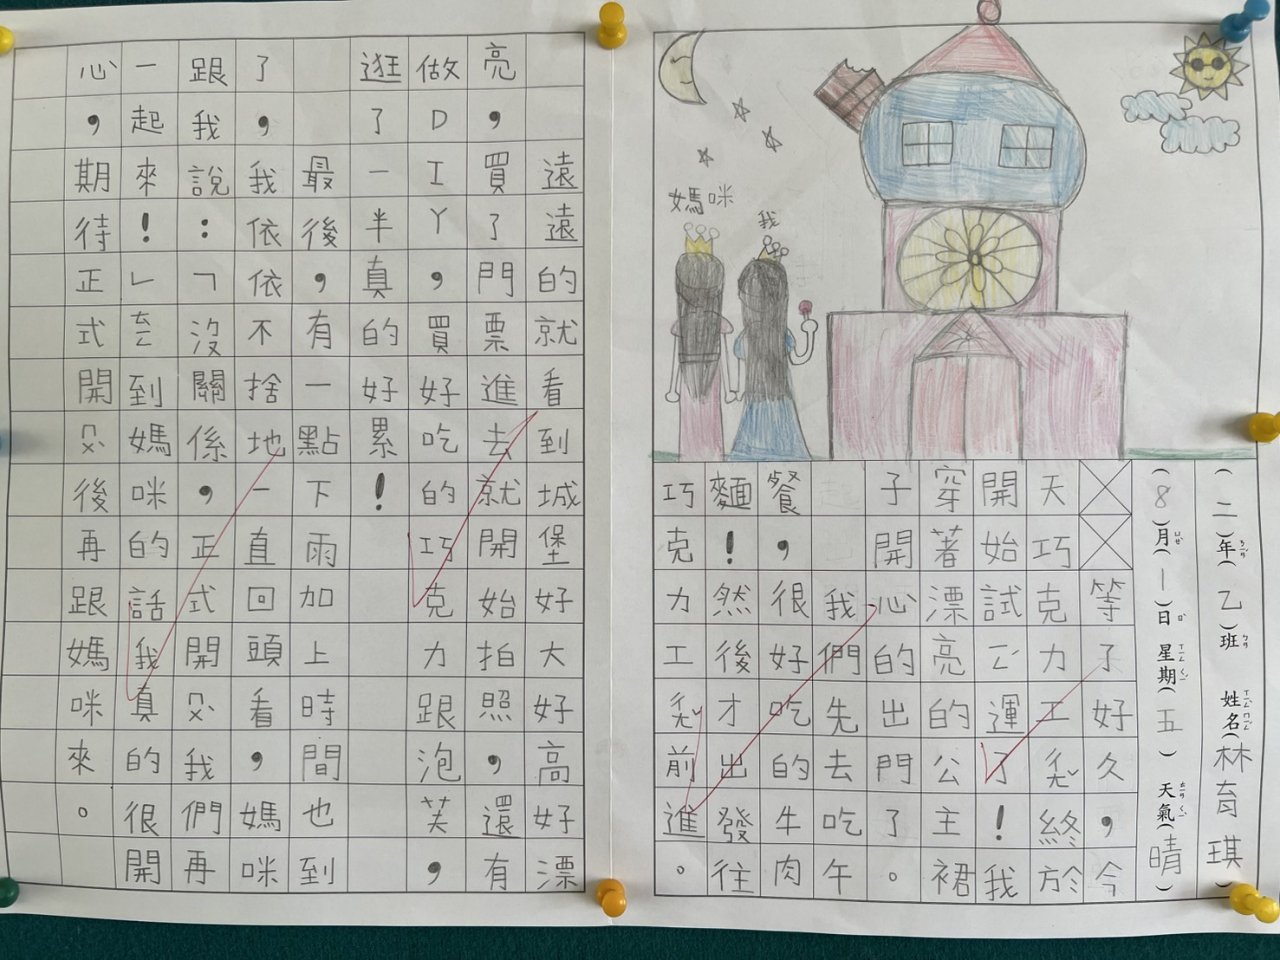 媽咪
我
(二)年(乙)班 姓名林育琪
(8)月(一)日 星期(五) 天氣(晴)
等了好久，今
天巧克力工ㄔㄤˇ終於
開始試運了！我
穿著漂亮的公主裙
子開心的出門了。
我們先去吃午
餐，很好吃的牛肉
麵！然後才出發往
巧克力工ㄔㄤˇ前進。
遠遠的就看到城堡好大好高好漂
亮，買了門票進去就開始拍照，還有
做DIY，買好吃的巧克力跟泡芙，
逛了一半真的好累！
最後，有一點下雨加上時間也到
了，我依依不捨地一直回頭看，媽咪
跟我說：「沒關係，正式開ㄇㄨˋ我們再
一起來！」ㄊㄧㄥ到媽咪的話我真的很開
心，期待正式開ㄇㄨˋ後再跟媽咪來。